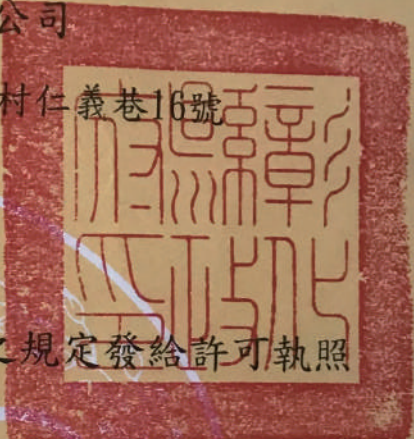 公司
村仁義巷16號
彰化
縣政
府印
之規定發給許可執照